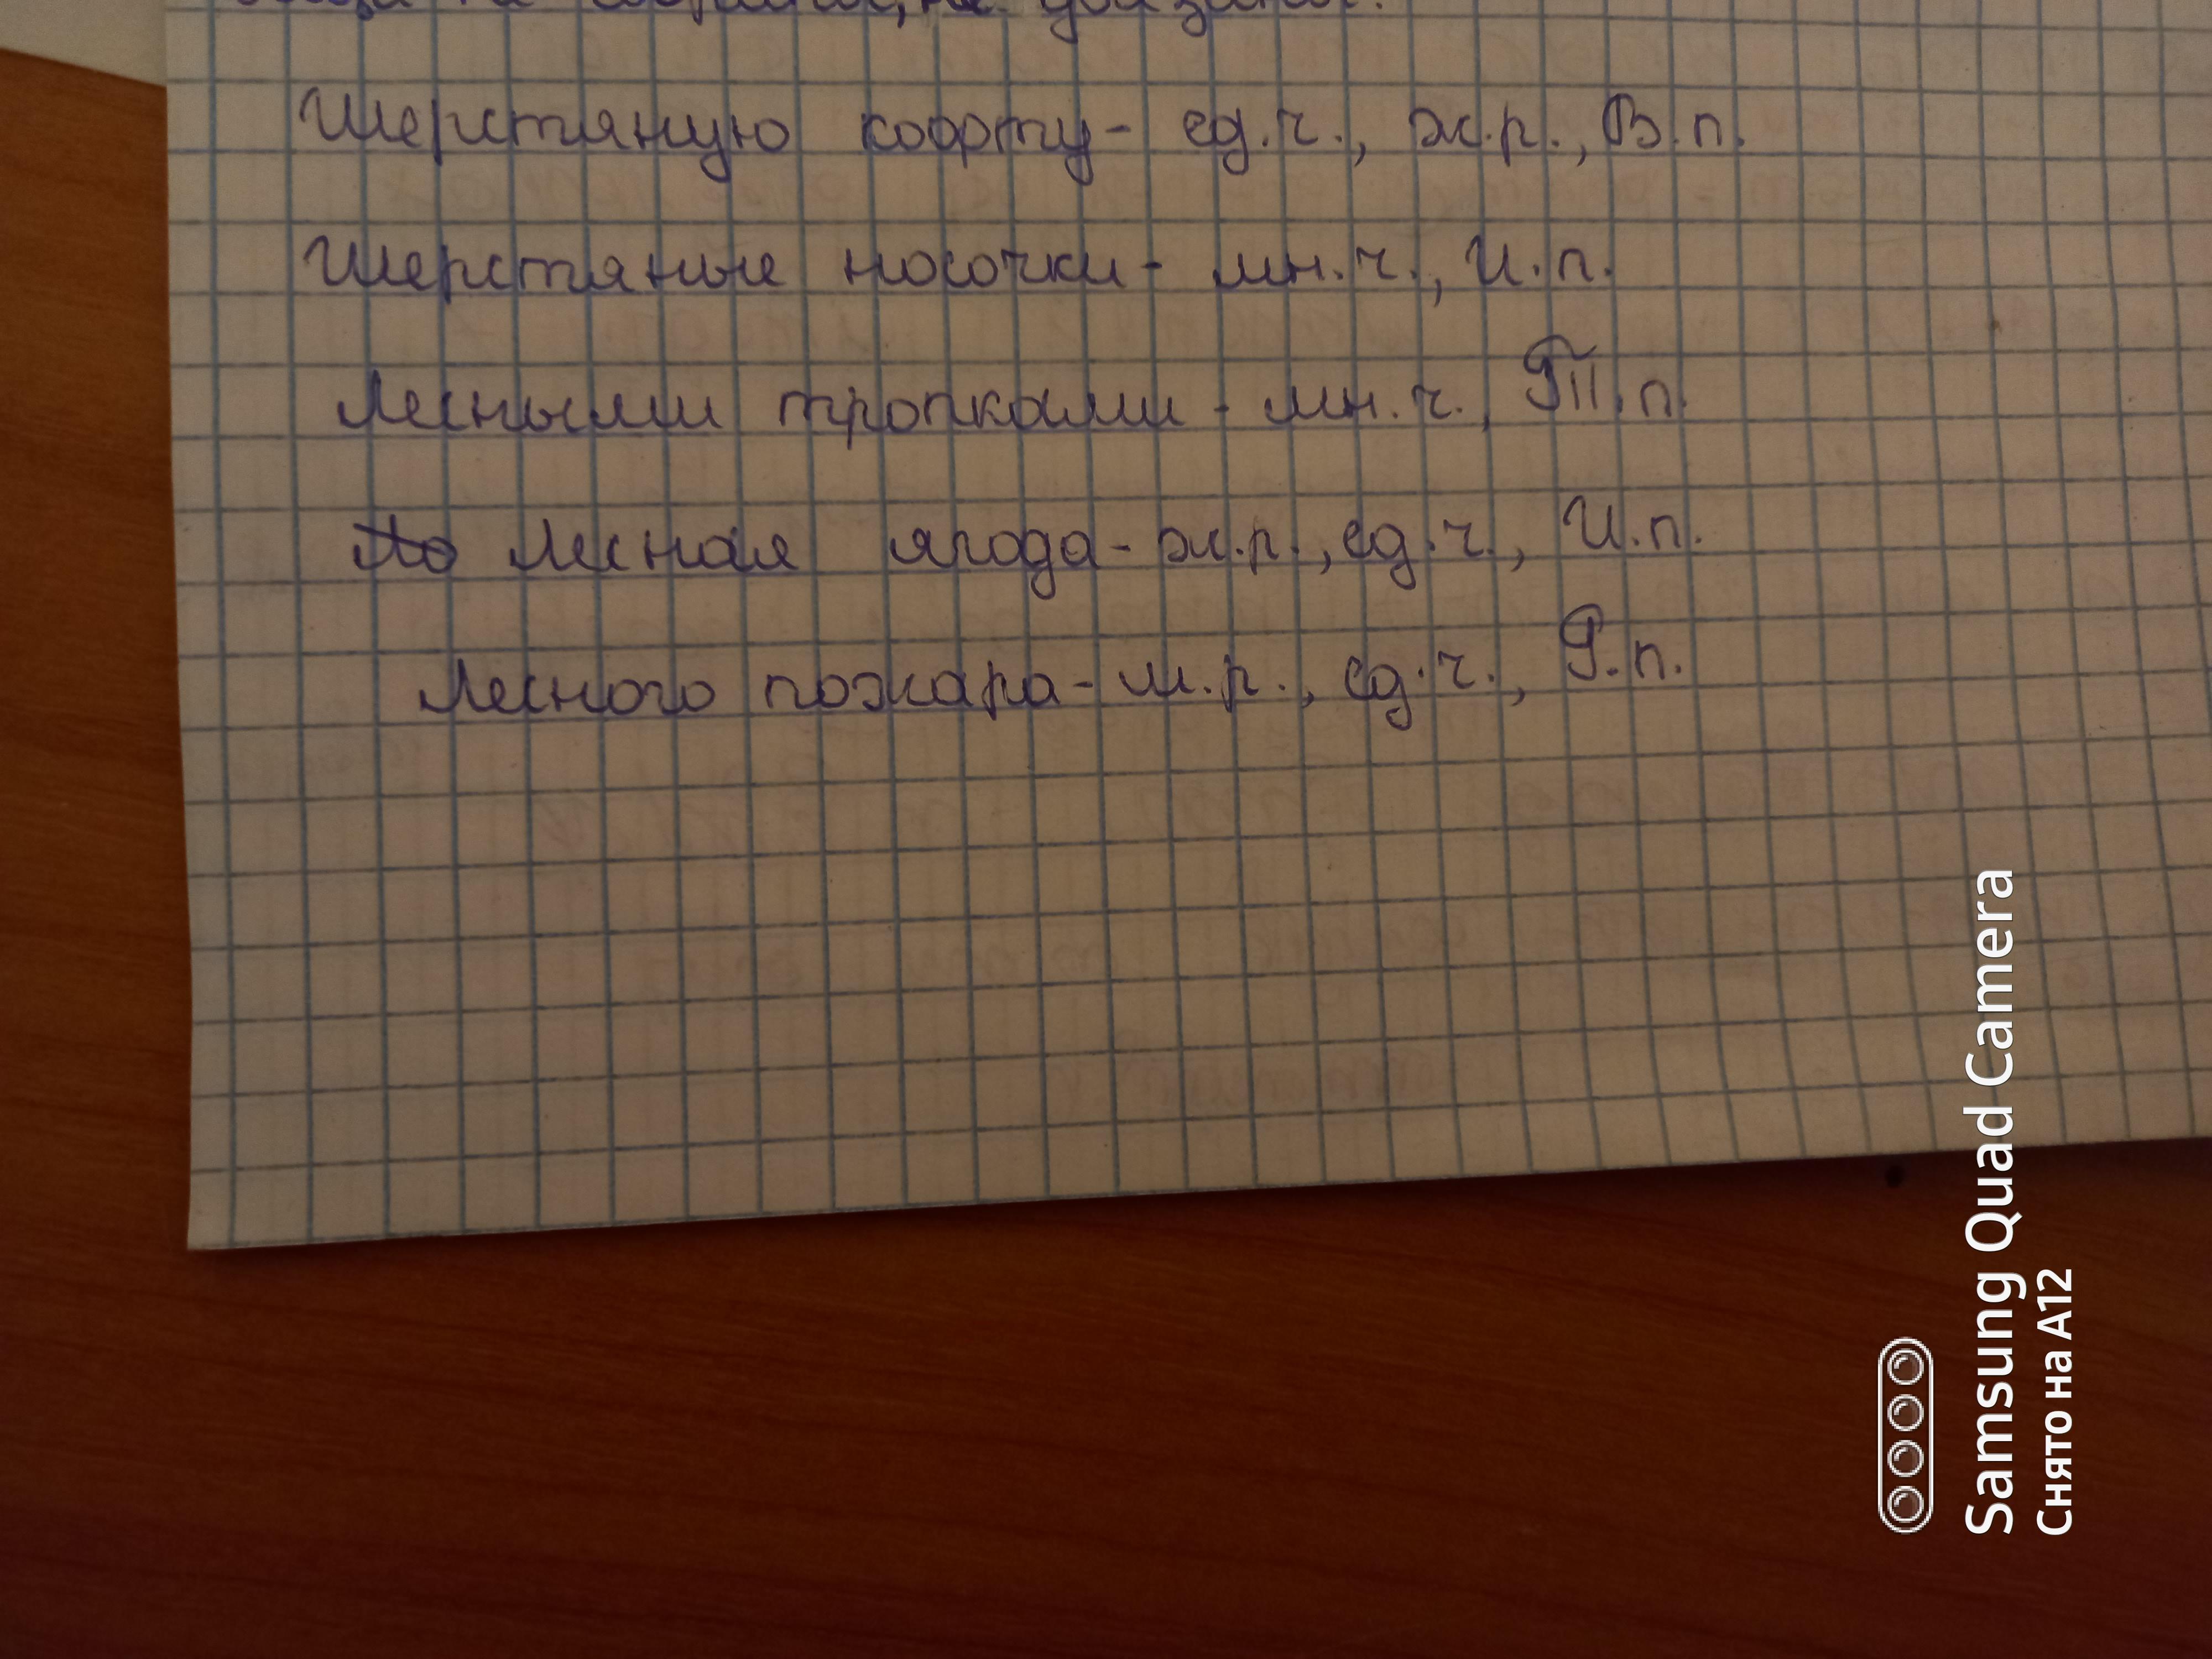 Шерстяную кофту - ед.ч., ж.р., В.п.
Шерстяные носочки - мн.ч., И.п.
Лесными тропками - мн.ч., Т.п.
Лесная ягода - ж.р., ед.ч., И.п.
Лесного пожара - м.р., ед.ч., Р.п.
Samsung Quad Camera
Снято на A12